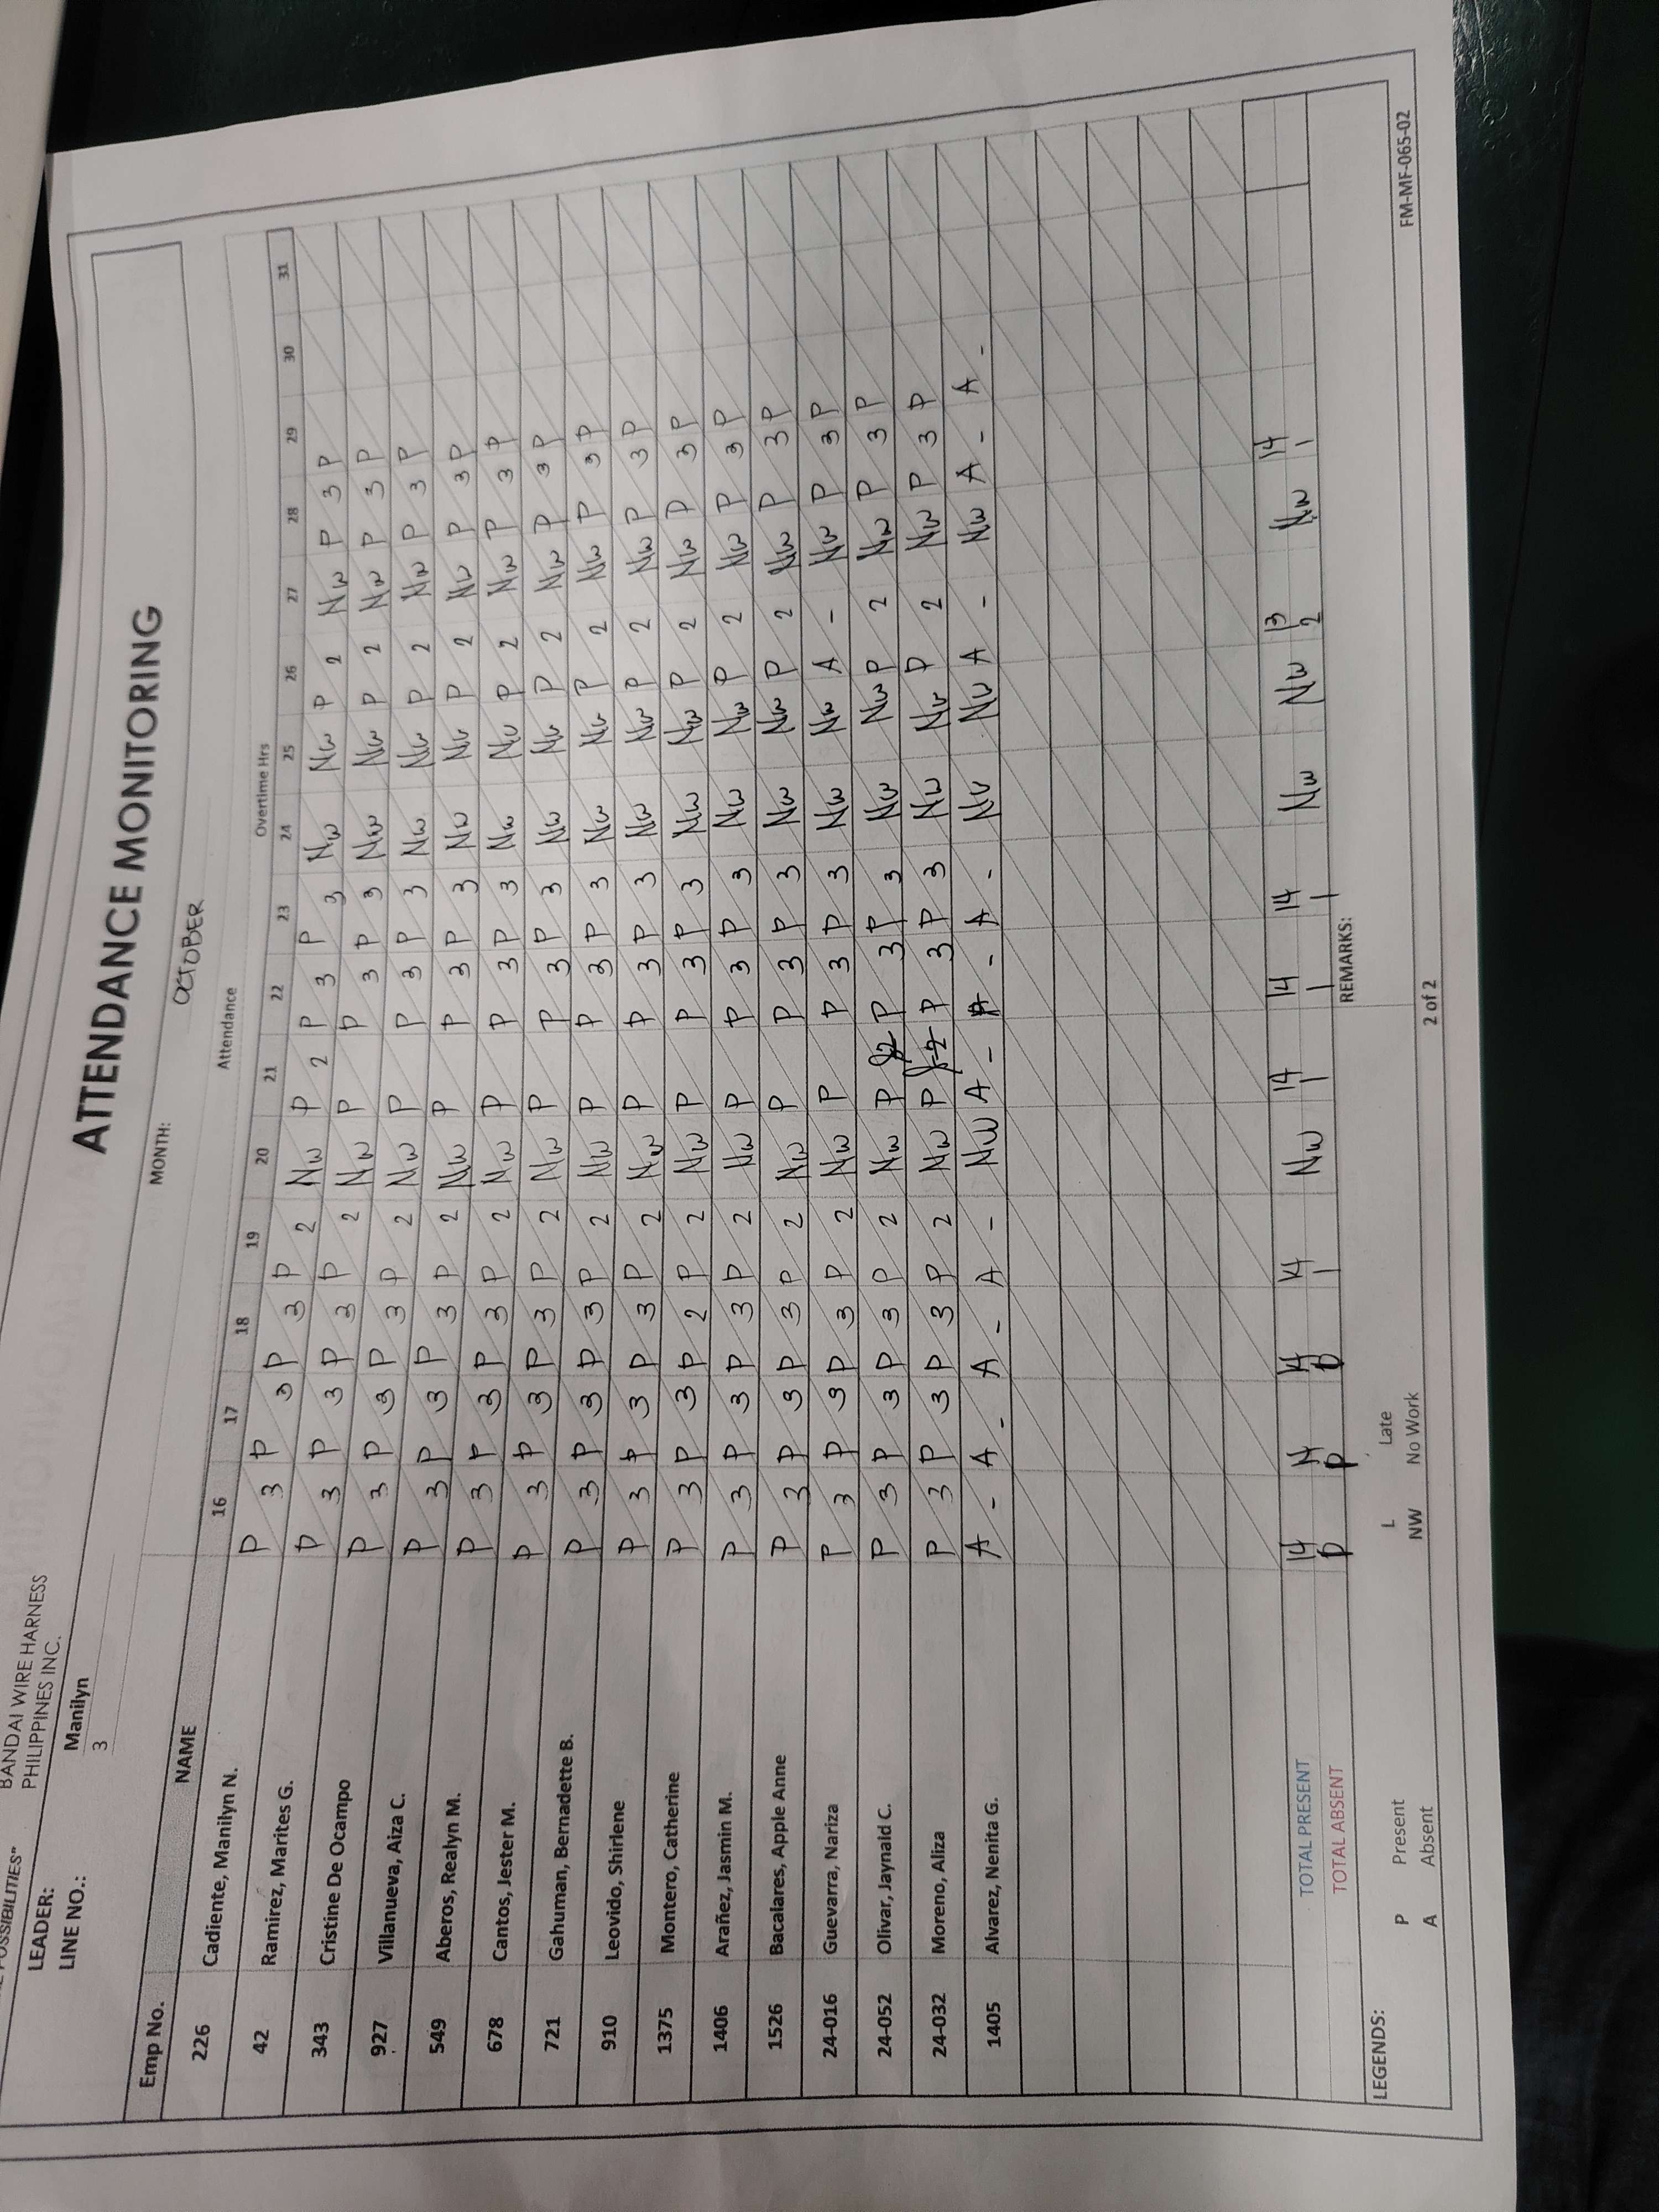 POSSIBILITIES"
BANDAI WIRE HARNESS
PHILIPPINES INC.
ATTENDANCE MONITORING
LEADER: Manilyn
LINE NO.: 3
MONTH: OCTOBER
Emp No. NAME Attendance Overtime Hrs
16 17 18 19 20 21 22 23 24 25 26 27 28 29 30 31
226 Cadiente, Manilyn N. P 3 P 3 P 3 P 2 NW P 2 P 3 P 3 NW NW P 2 NW P 3 P
42 Ramirez, Marites G. P 3 P 3 P 3 P 2 NW P P 3 P 3 NW NW P 2 NW P 3 P
343 Cristine De Ocampo P 3 P 3 P 3 P 2 NW P P 3 P 3 NW NW P 2 NW P 3 P
927 Villanueva, Aiza C. P 3 P 3 P 3 P 2 NW P P 3 P 3 NW NW P 2 NW P 3 P
549 Aberos, Realyn M. P 3 P 3 P 3 P 2 NW P P 3 P 3 NW NW P 2 NW P 3 P
678 Cantos, Jester M. P 3 P 3 P 3 P 2 NW P P 3 P 3 NW NW P 2 NW P 3 P
721 Gahuman, Bernadette B. P 3 P 3 P 3 P 2 NW P P 3 P 3 NW NW P 2 NW P 3 P
910 Leovido, Shirlene P 3 P 3 P 3 P 2 NW P P 3 P 3 NW NW P 2 NW P 3 P
1375 Montero, Catherine P 3 P 3 P 2 P 2 NW P P 3 P 3 NW NW P 2 NW P 3 P
1406 Arañez, Jasmin M. P 3 P 3 P 3 P 2 NW P P 3 P 3 NW NW P 2 NW P 3 P
1526 Bacalares, Apple Anne P 3 P 3 P 3 P 2 NW P P 3 P 3 NW NW P 2 NW P 3 P
24-016 Guevarra, Nariza P 3 P 3 P 3 P 2 NW P P 3 P 3 NW NW A - NW P 3 P
24-052 Olivar, Jaynald C. P 3 P 3 P 3 P 2 NW P 2 P 3 P 3 NW NW P 2 NW P 3 P
24-032 Moreno, Aliza P 3 P 3 P 3 P 2 NW P 2 P 3 P 3 NW NW P 2 NW P 3 P
1405 Alvarez, Nenita G. A - A - A - A - NW A - A - A - NW NW A - NW A - A -
TOTAL PRESENT 14 14 14 14 NW 14 14 14 NW NW 13 NW 14
TOTAL ABSENT 1 1 1 1 2 1
LEGENDS:
P Present L Late
A Absent NW No Work
REMARKS:
2 of 2
FM-MF-065-02